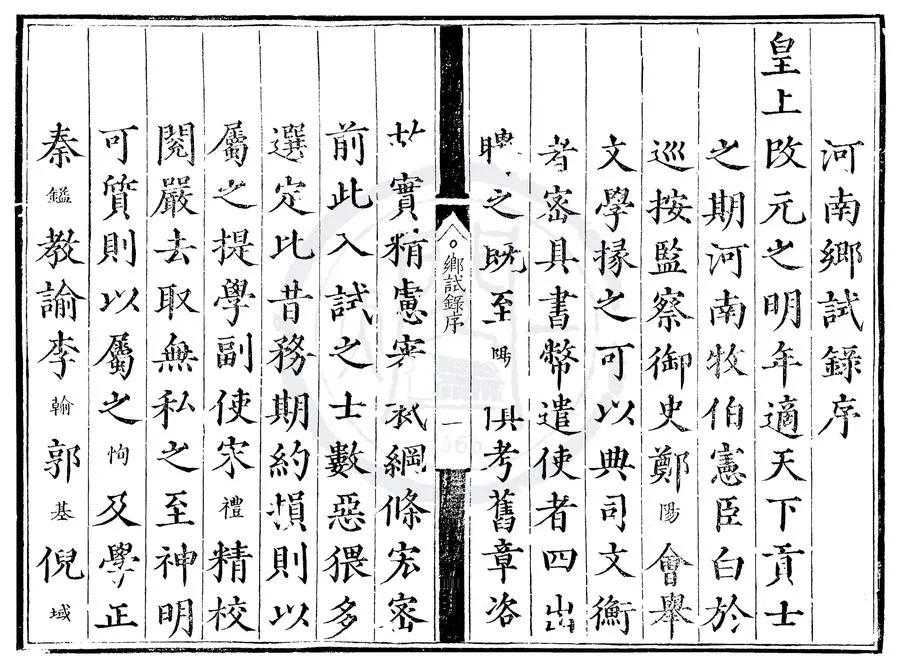 河南鄉試錄序
皇上改元之明年適天下貢士
之期河南牧伯憲臣白於
巡按監察御史鄭陽會舉
文學掾之可以典司文衡
者密具書幣遣使者四出
聘之既至陽俱考舊章咨
實精慮 綱條宏密
前此入試之士數惡猥多
選定比昔務期約損則以
屬之提學副使宋禮精校
閱嚴去取無私之至神明
可質則以屬之恂及學正
秦鎰教諭李翰郭基倪域
鄉試錄序
一